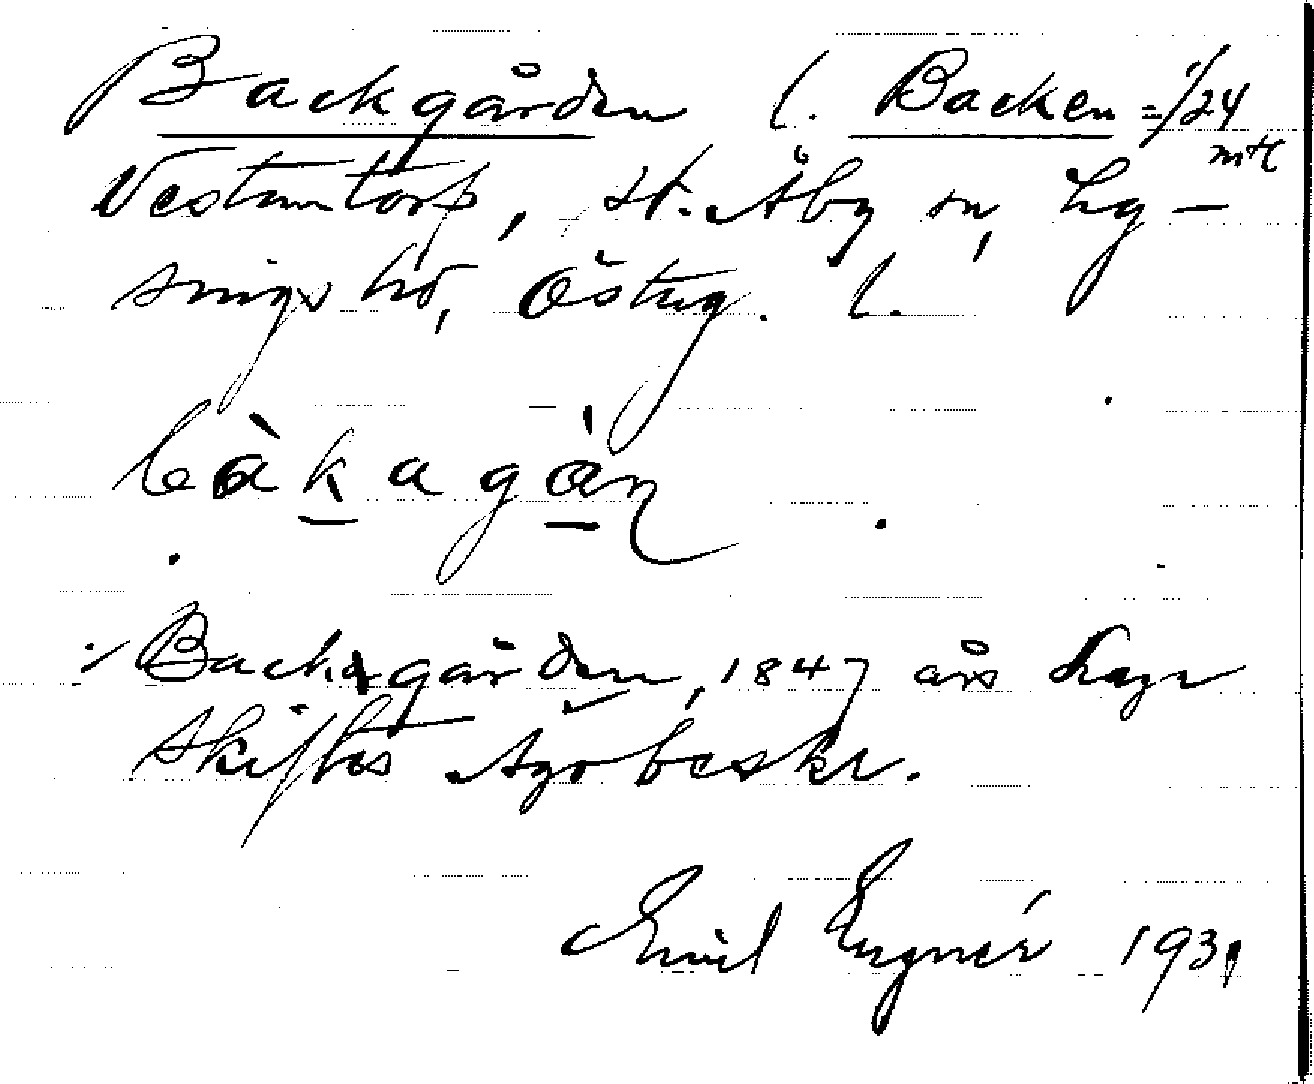 Backgården l. Backen = 1/24
mtl
Vestantorp, St. Åby sn, Ly-
sings hd, Österg. l.
bàkagàn
Backagården, 1847 års Laga
skiftes Ägobeskr.
Emil Engnér 1931